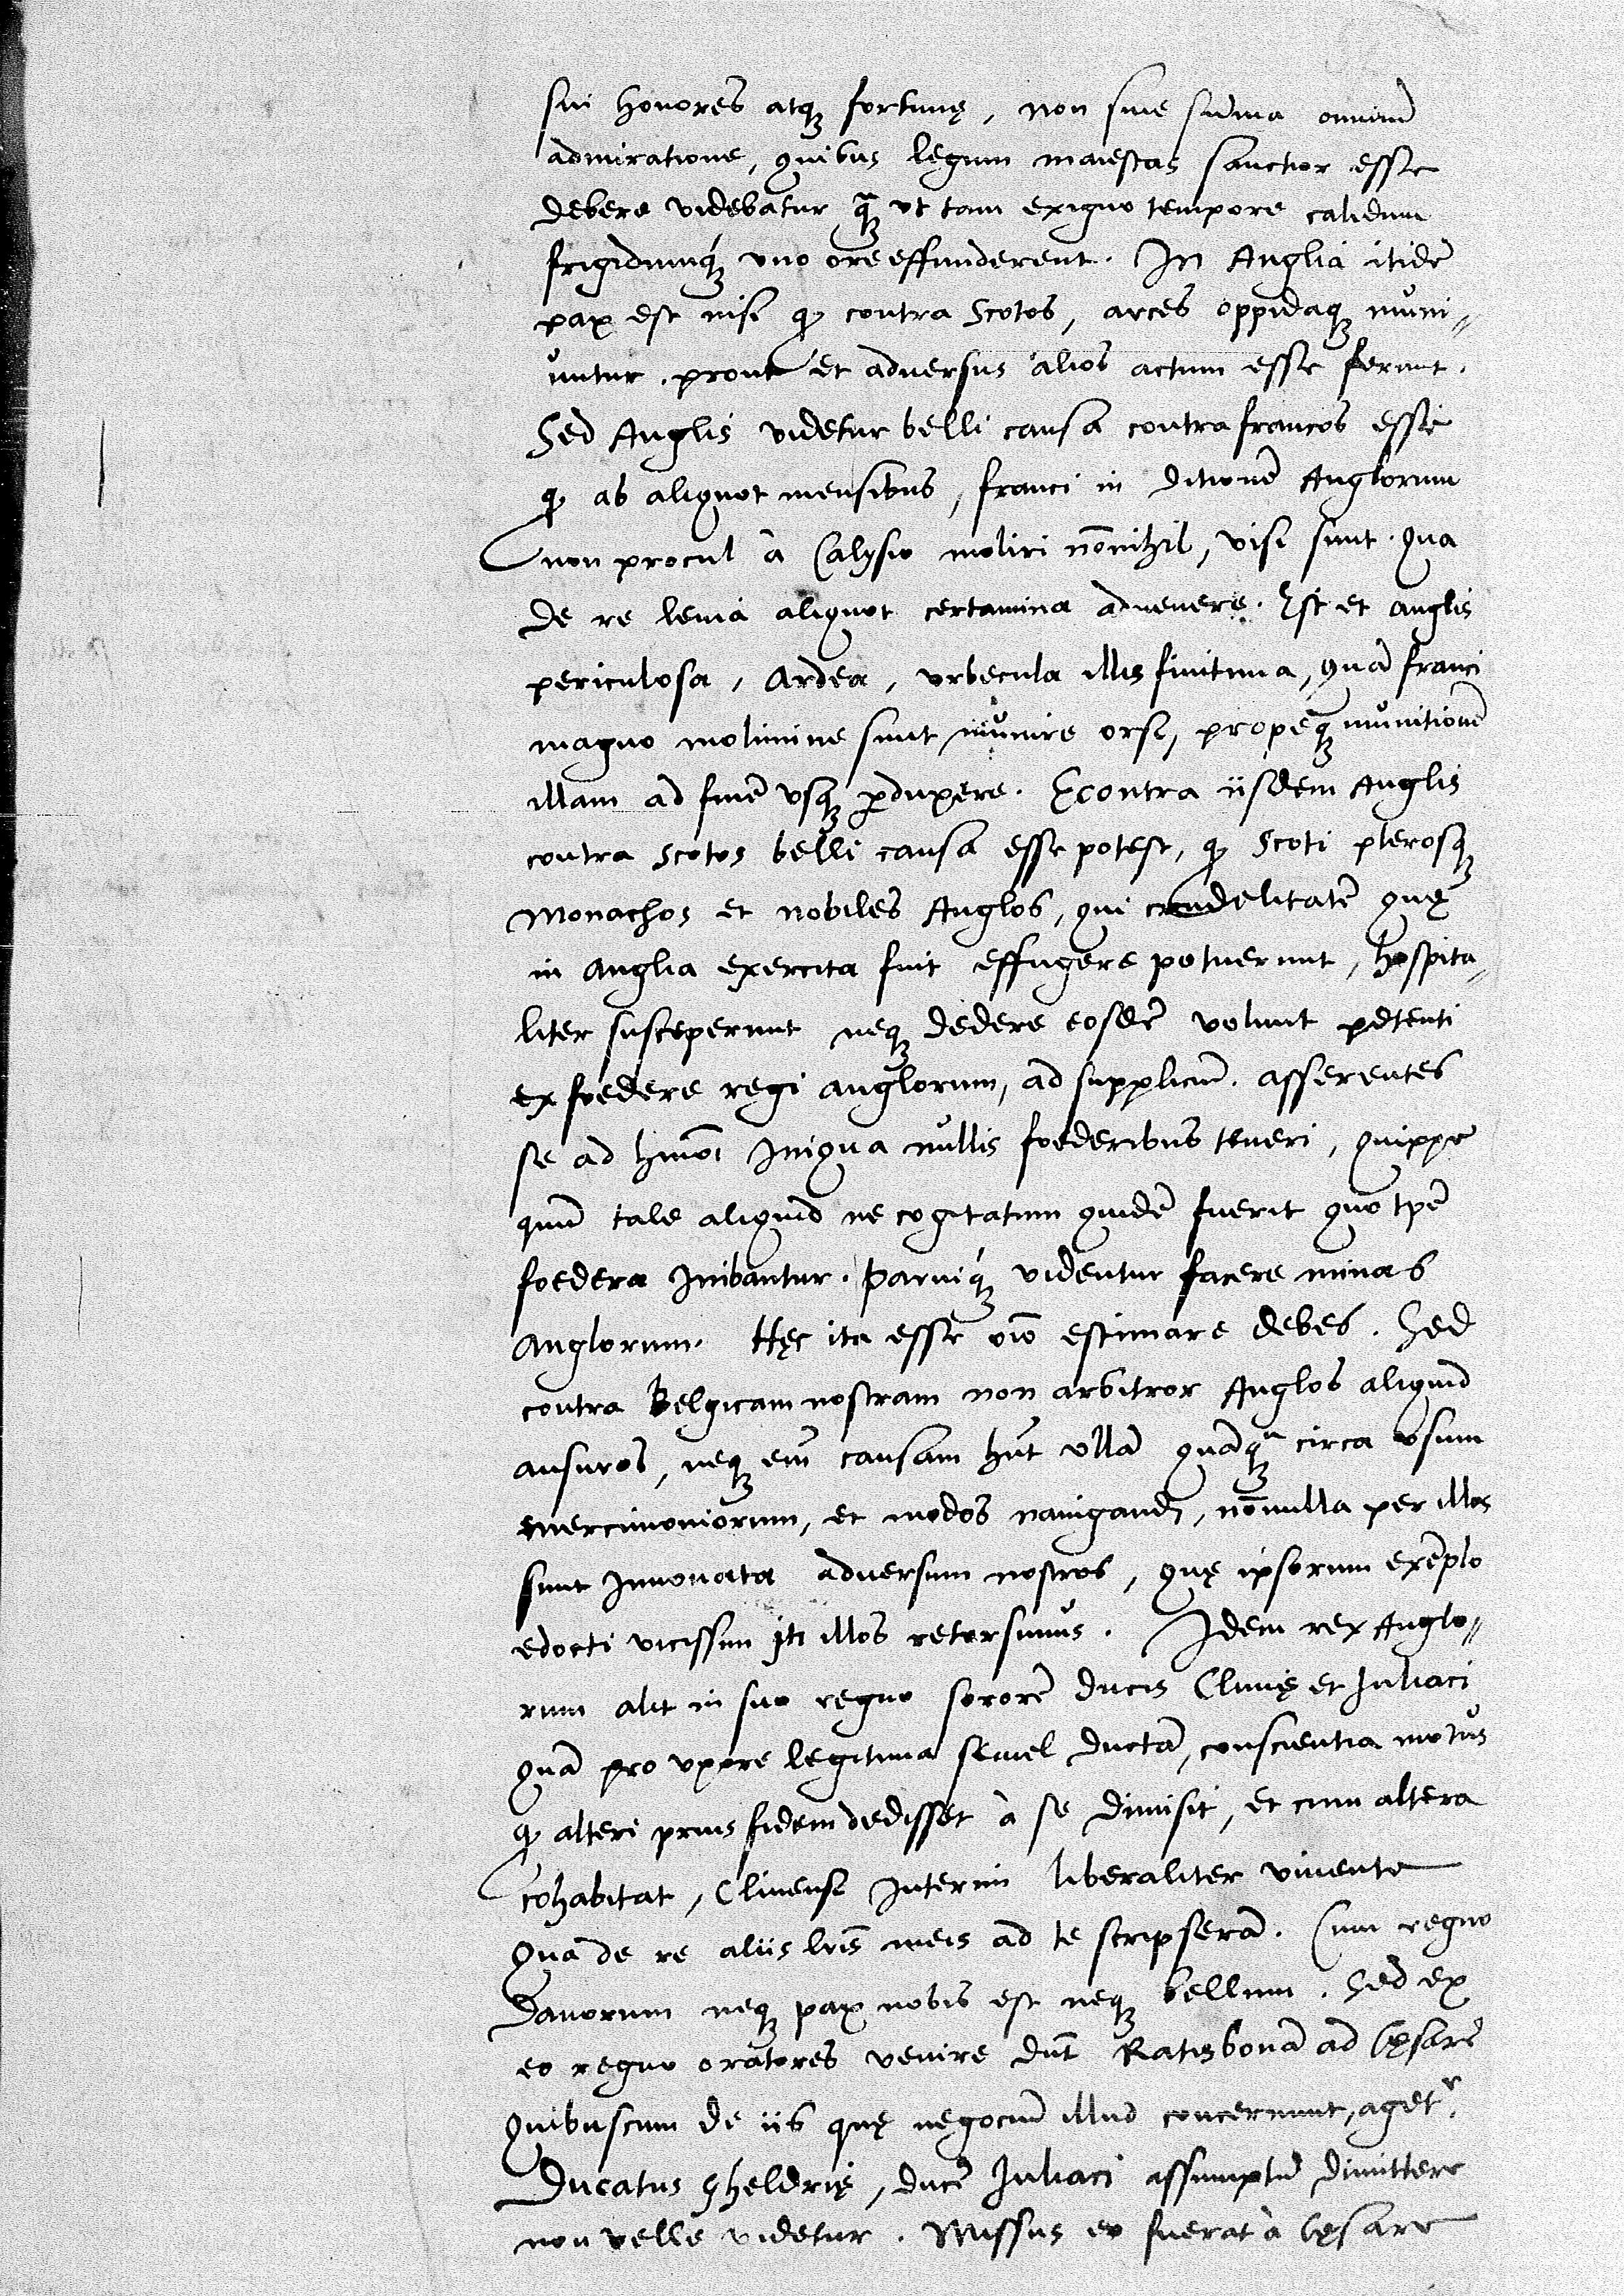 sui honores atq; fortunę, non sine sum̄a omnium̄
admiratione, quibus legum maiestas sanctior esse
debere videbatur q̄; vt tam exiguo tempore calidum
frigidumq́; vno ore effunderent. In Anglia itidē
pax est nisi qꝫ contra Scotos, arces oppidaq; muni⸗
untur, prout et aduersus alios actum esse ferunt.
Sed Anglis videtur belli causa contra francos esse
qꝫ ab aliquot mensibus, franci in ditionē Anglorum
non procul à Calysio moliri nōnihil, visi sunt. Qua
de re leuia aliquot certamina aduenere. Est et anglis
periculosa, Ardea, vrbecula illis finitima, quā franci
magno molimine sunt munire orsi, propeq; munitionē
illam ad finē vsq; ꝑduxere. Econtra iisdem Anglis
contra Scotos belli causa esse potest, qꝫ Scoti plerosq;
Monachos et nobiles Anglos, qui crudelitatē quę
in Anglia exercita fuit effugere potuerunt, hospita⸗
liter susceperunt neq; dedere eosdē volunt petenti
ex foedere regi anglorum, ad suppliciū. asserentes
se ad hmōi Iniqua nullis foederibus teneri, quippe
quū tale aliquid ne cogitatum quidē fuerit quo tp̄e
foedera Inibantur. Paruiq́; videntur facere minas
Anglorum. Hęc ita esse oīo estimare debes. Sed
contra Belgicam nostram non arbitror Anglos aliquid
ausuros, neq; em̄ causam hn̄t vllā quāq; circa vsum
mercimoniorum, et modos nauigandi, nōnulla per illos
sunt Innouata aduersum nostros, quę ipsorum exēplo
edocti vicissim in illos retorsimus. Idem rex Anglo⸗
rum alit in suo regno sororē ducis Cliuię et Iuliaci
quā pro vxore legitima semel ductā, conscientia motus
qꝫ alteri prius fidem dedisset à se dimisit, et cum altera
cohabitat, Cliuensi Interim liberaliter viuente
Qua de re aliis lr̄is meis ad te scripserā. Cum regno
Danorum neq; pax nobis est neq; bellum. Sed ex
eo regno oratores venire dn̄t Ratisbonā ad Cęsarē
Quibuscum de iis quę negociū illud concernunt, agetʳ.
Ducatus Gheldrię, ducē Iuliaci assumptū dimittere
non velle videtur. Missus eo fuerat à Cęsare